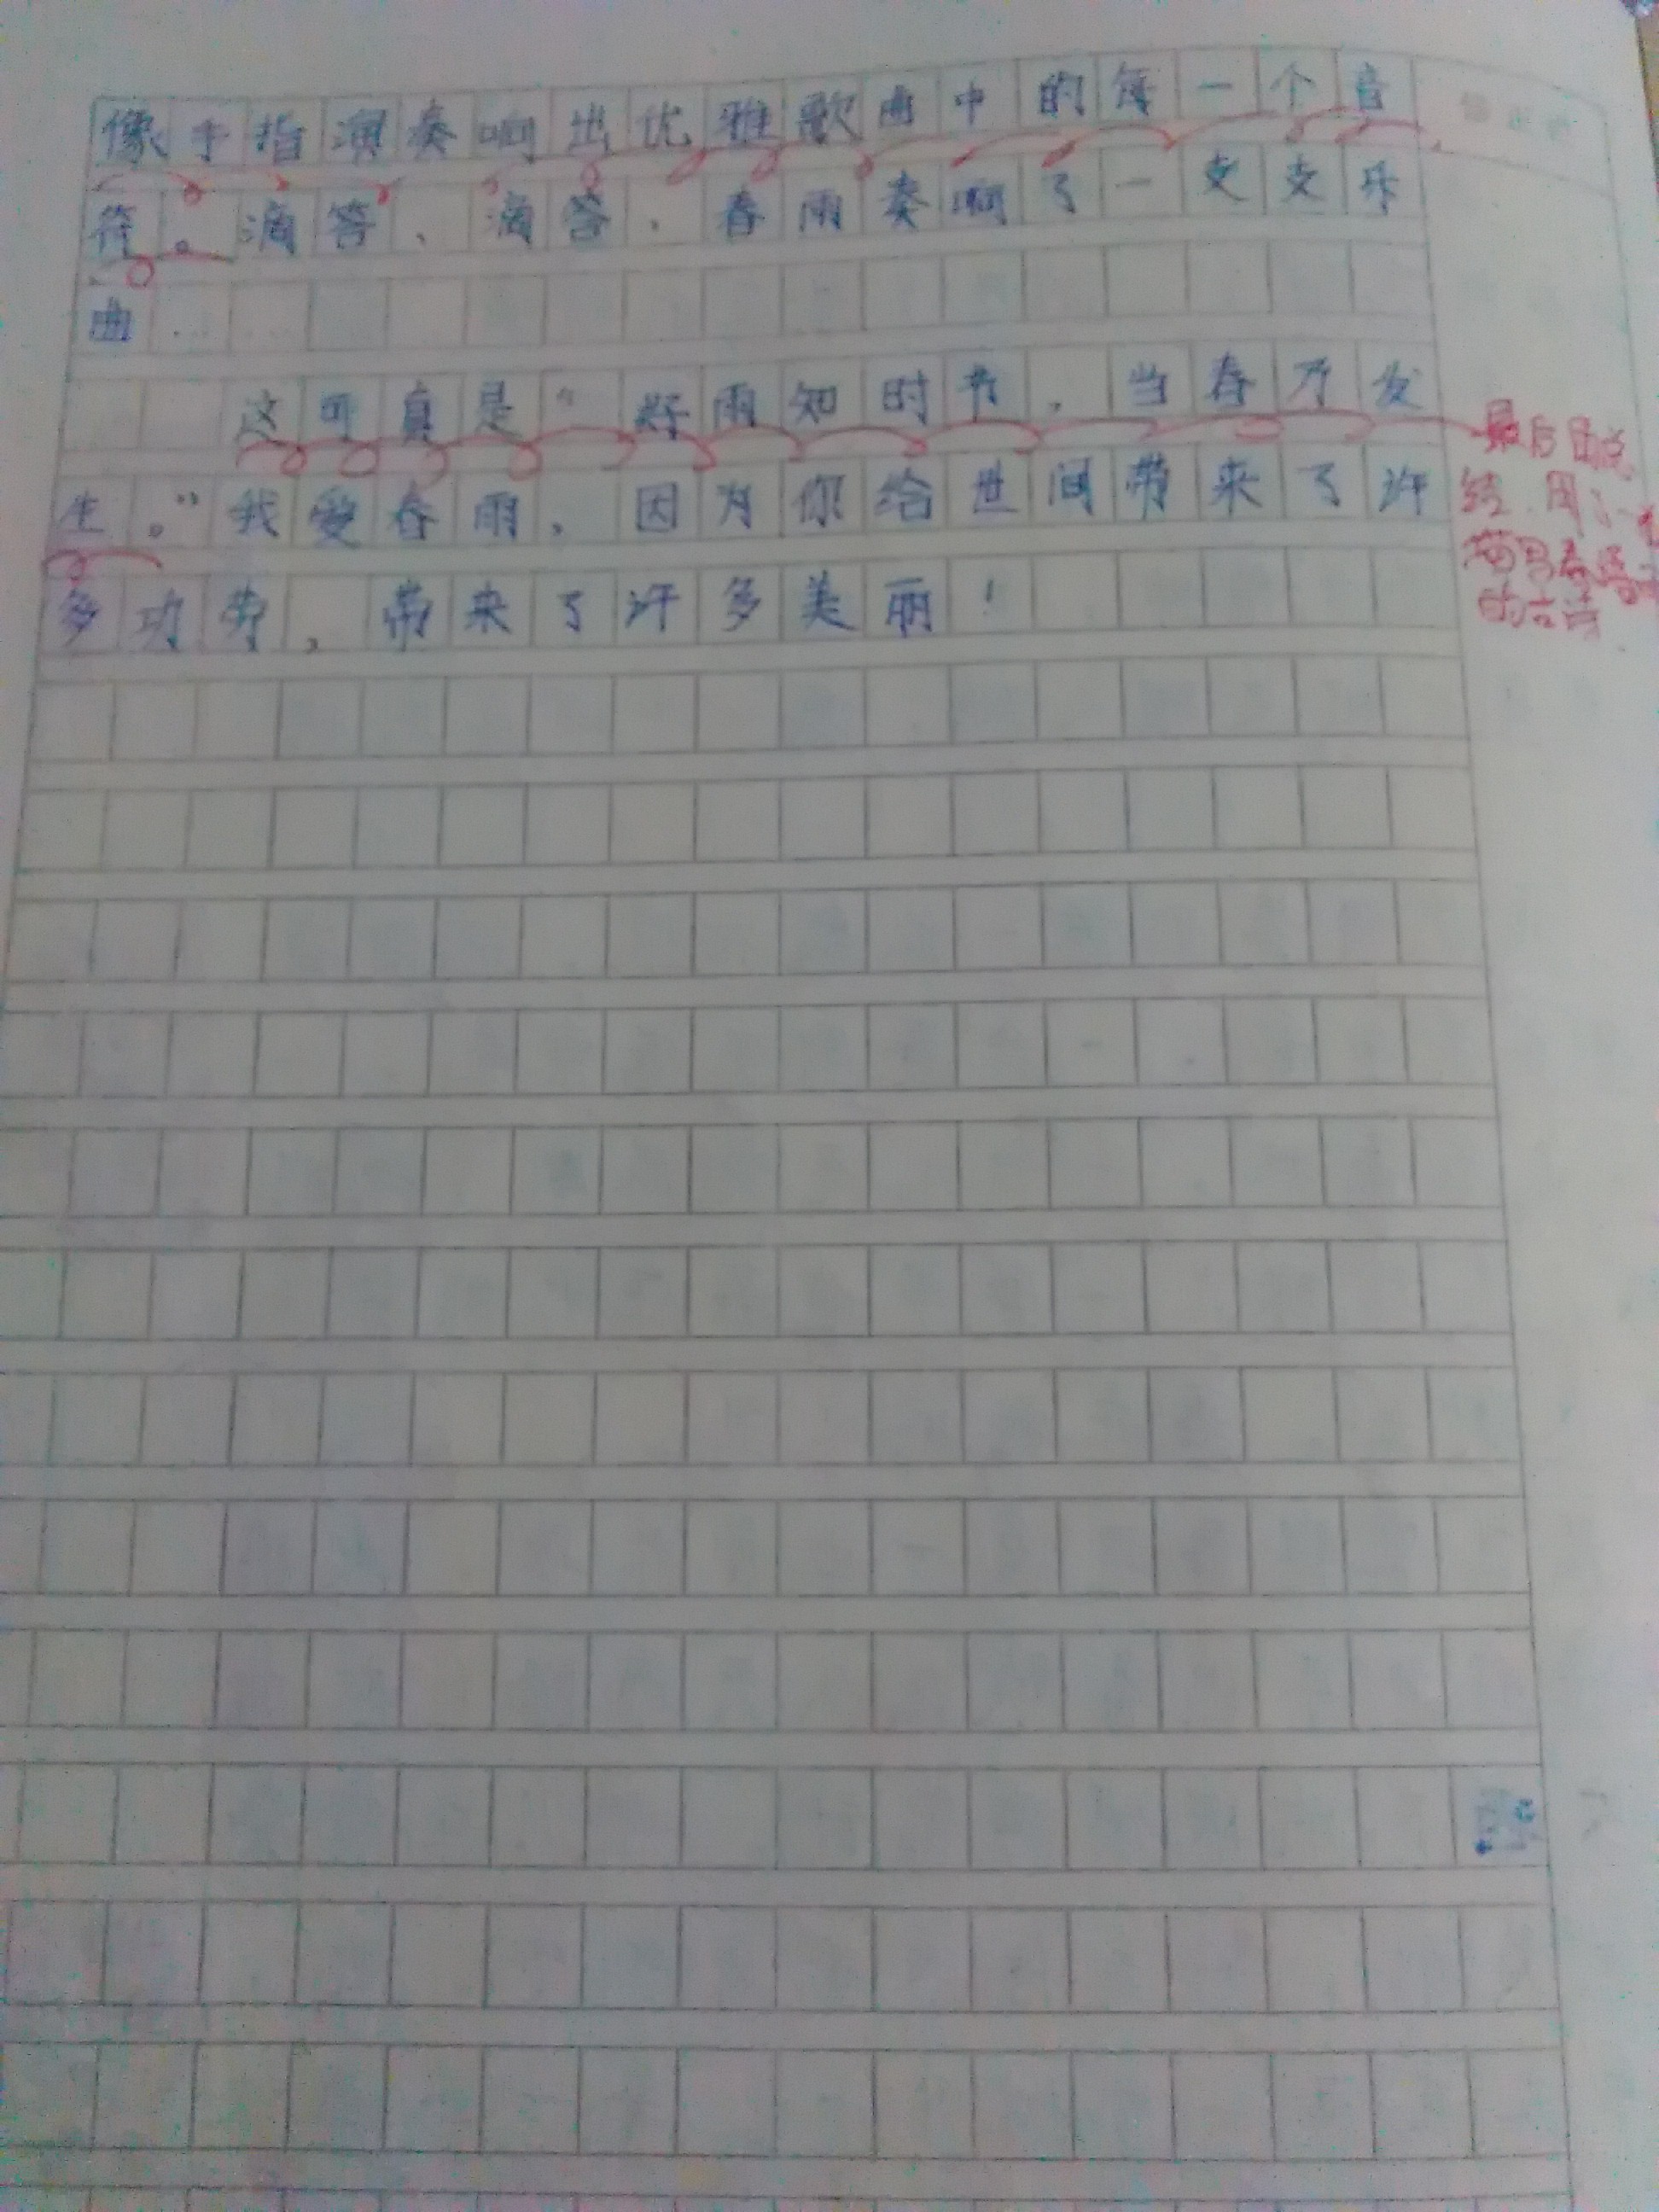 像手指演奏响出优雅歌曲中的每一个音
符。滴答、滴答,春雨奏响了一支支乐
曲……
这可真是“好雨知时节,当春乃发
生。”我爱春雨,因为你给世间带来了许
多功劳,带来了许多美丽!
最后
结,用
描写春
的古诗